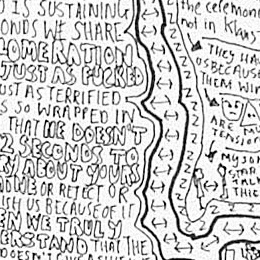 IS SUSTAINING
ONDS WE SHARE
LOMERATION
JUST AS FUCKED
UST AS TERRIFIED
S SO WRAPPED IN
THAT HE DOESN'T
2 SECONDS TO
ABOUT YOURS
OR REJECT OR
ISH US BECAUSE OF IT
EN WE TRULY
ERSTAND THAT THE
the ceremon
not in Klans
THEY HA
US BECAUSE
THEM WIN
ARE MU
TENSION
MY SON
STAR
TALK
THIS